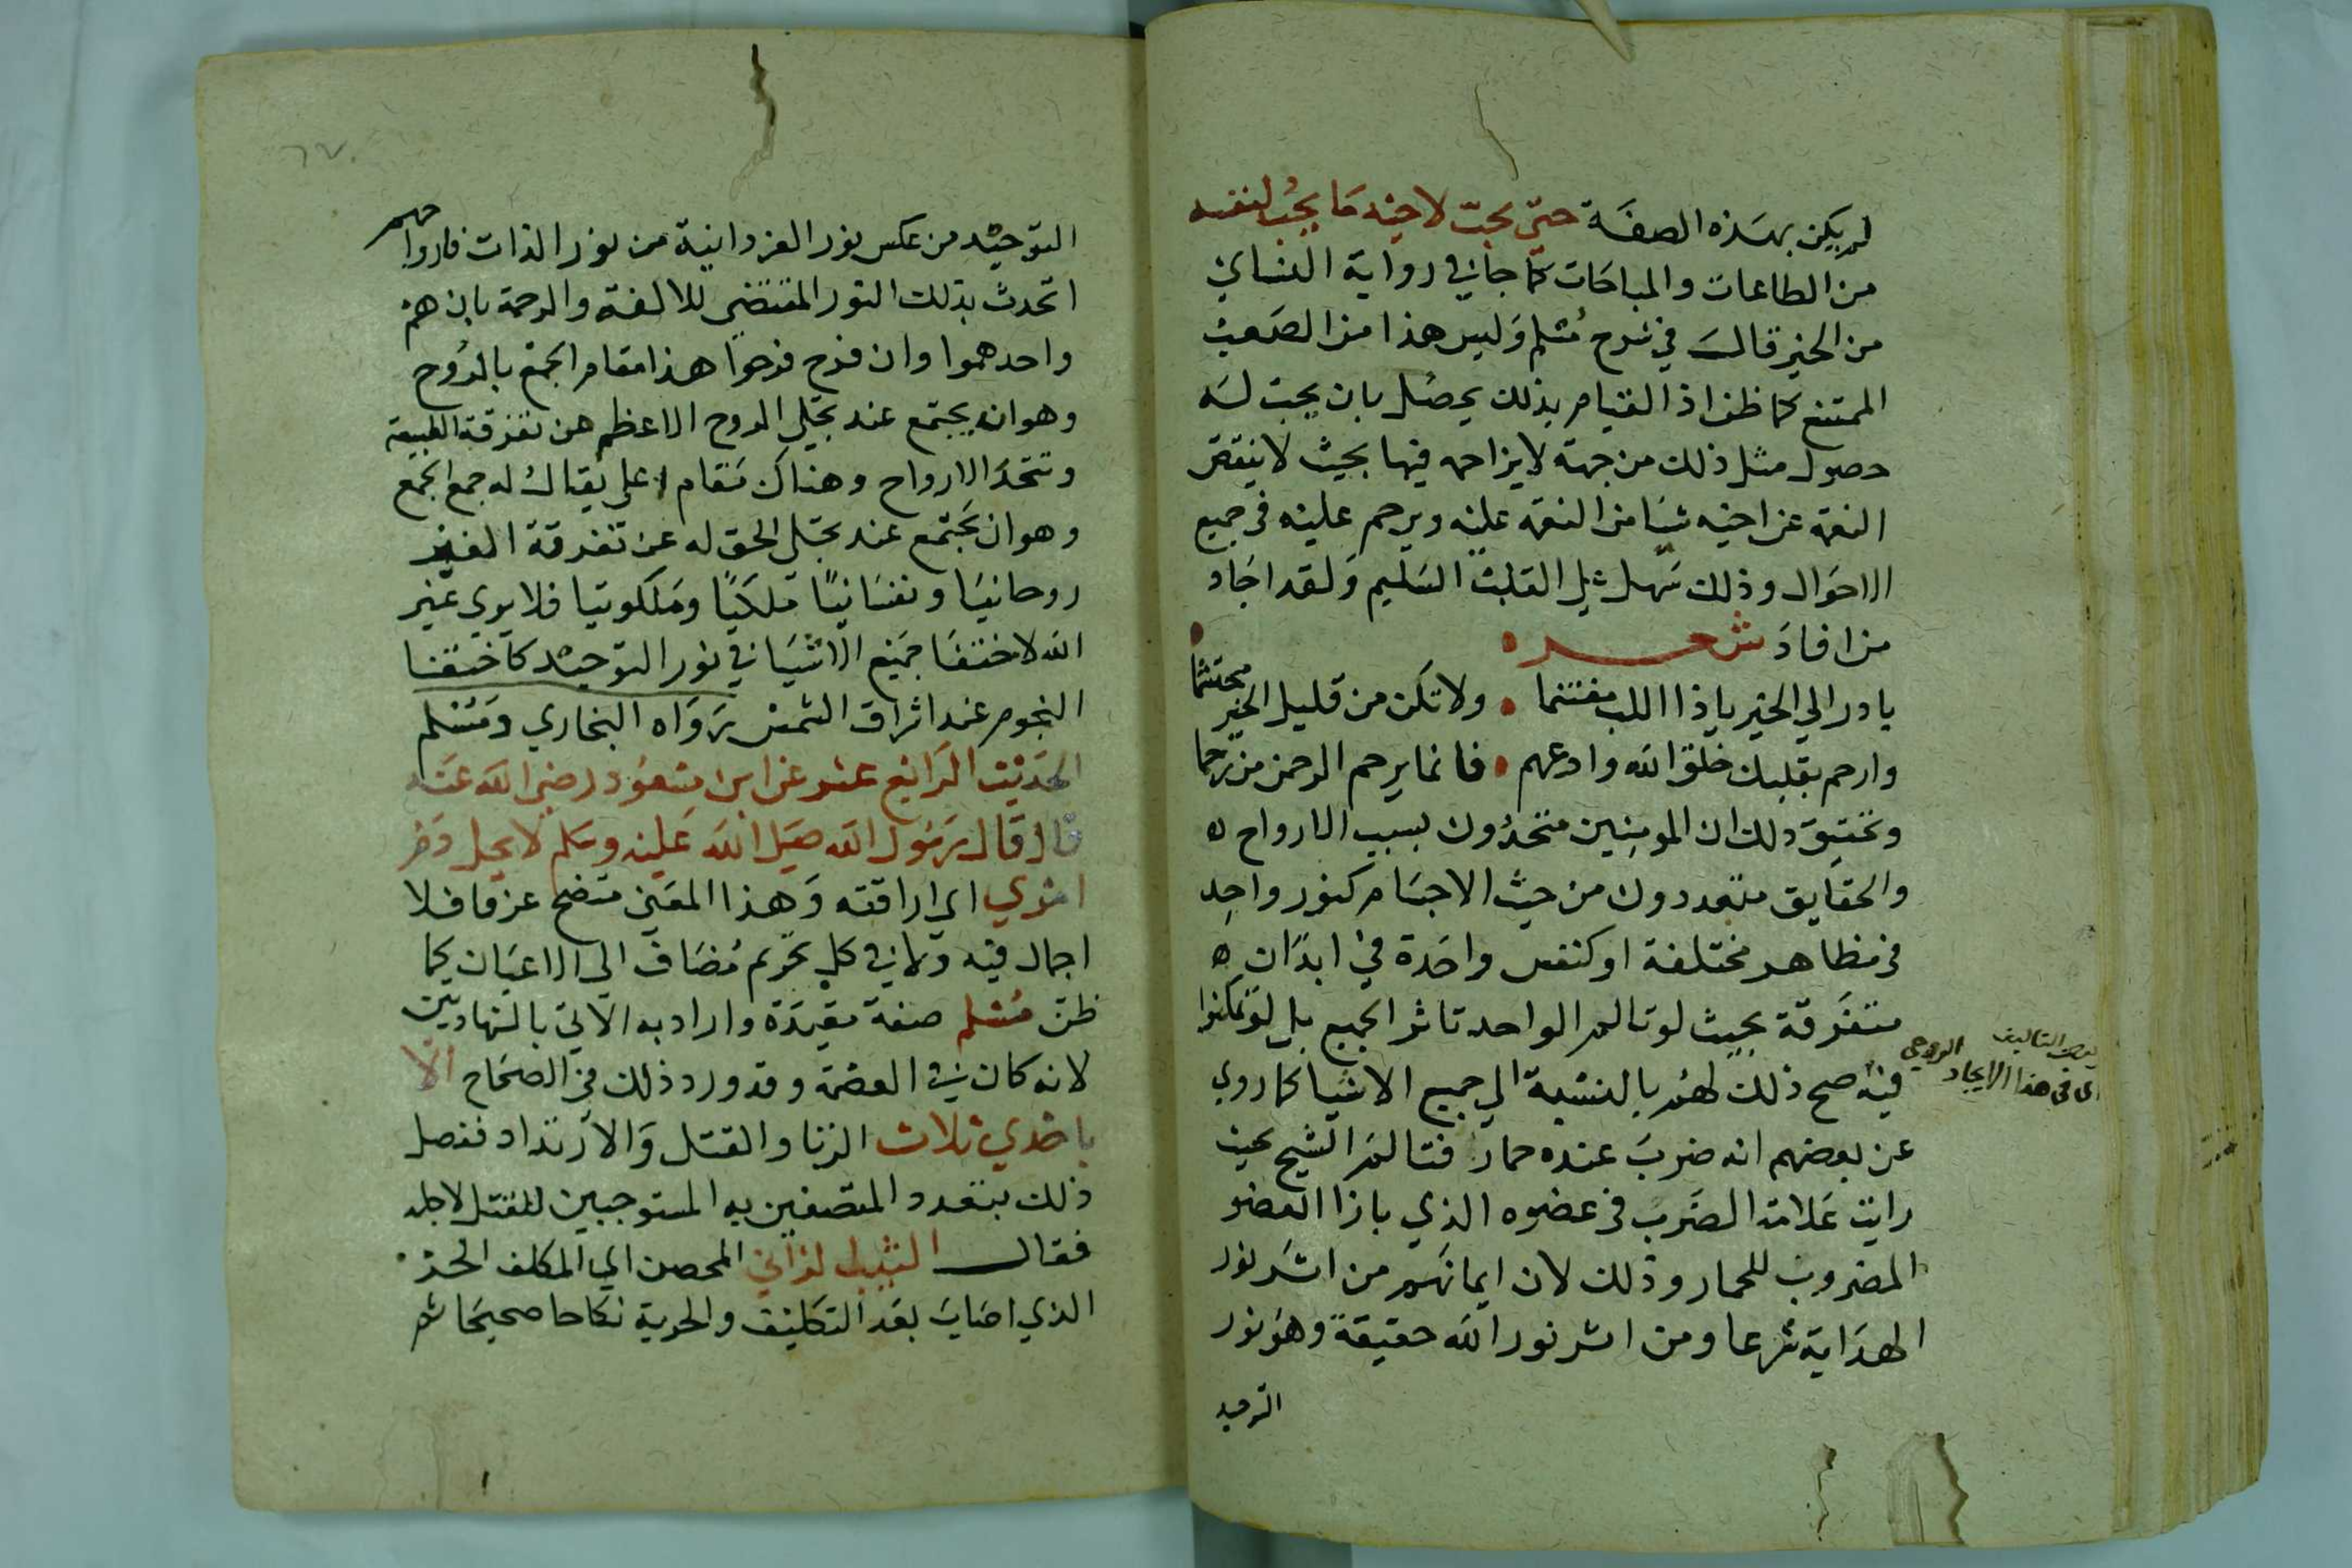 لم يكن بهذه الصفة حتى يحب لاخيه ما يحب لنفسه
من الطاعات والمباحات كما جا في رواية النساي
من الخير قال في شرح مسلم وليس هذا من الصعب
الممتنع كما ظن اذ القيام بذلك يحصل بان يحب له
حصول مثل ذلك من جهة لا يزاحمه فيها بحيث لا ينقص
النعمة عن اخيه شيا من النعمة عليه ويرحم عليه في جميع
الاحوال وذلك سهل على القلب السليم ولقد اجاد
من افاد شعر
بادر الى الخير ياذا اللب مغتنما ولا تكن من قليل الخير محتشما
وارحم بقلبك خلق الله وادعهم فانما يرحم الرحمن من رحما
وتحقيق ذلك ان المومنين متحدون بسبب الارواح
والحقايق متعددون من حيث الاجسام كنور واحد
في مظاهر مختلفة او كنفس واحدة في ابدان
متفرقة بحيث لو تالم الواحد تاثر الجميع بل لو تمكنوا
فيه صح ذلك لهم بالنسبة الي جميع الاشيا كما روي
عن بعضهم انه ضرب عنده حمار فتالم الشيخ بحيث
رايت علامة الضرب في عضوه الذي بازا العضو
المضروب للحمار وذلك لان ايمانهم من اثر نور
الهداية شرعا ومن اثر نور الله حقيقة وهو نور
التوحيد
اي في هذا الايجاد الروحي
التوحيد من عكس نور الفردانية من نور الذات فارواحهم
اتحدت بذلك النور المقتضي للالفة والرحمة بان هم
واحد هموا وان فرح فرحوا هذا مقام الجمع بالروح
وهو ان يجتمع عند تجلي الروح الاعظم عن تفرقة الطبيعة
وتتحد الارواح وهناك مقام اعلى يقال له جمع الجمع
وهو ان يجتمع عند تجلي الحق له عن تفرقة الغير
روحانيا ونفسانيا ملكيا وملكوتيا فلا يري غير
الله لاختفا جميع الاشيا في نور التوحيد كاختفا
النجوم عند اشراق الشمس رواه البخاري ومسلم
الحديث الرابع عشر عن ابن مسعود رضي الله عنه
قال قال رسول الله صلى الله عليه وسلم لا يحل دم
امري اي اراقته وهذا المعني متضح عرفا فلا
اجمال فيه ولا في كل تحريم مضاف الي الاعيان كما
ظن مسلم صفة مقيدة واراد به الاتي بالشهادتين
لانه كان في العصمة وقد ورد ذلك في الصحاح الا
باحدي ثلاث الزنا والقتل والارتداد ففصل
ذلك بتعدد المتصفين به المستوجبين للقتل لاجله
فقال الثيب الزاني المحصن اي المكلف الحر
الذي اصاب بعد التكليف والحرية نكاحا صحيحا ثم